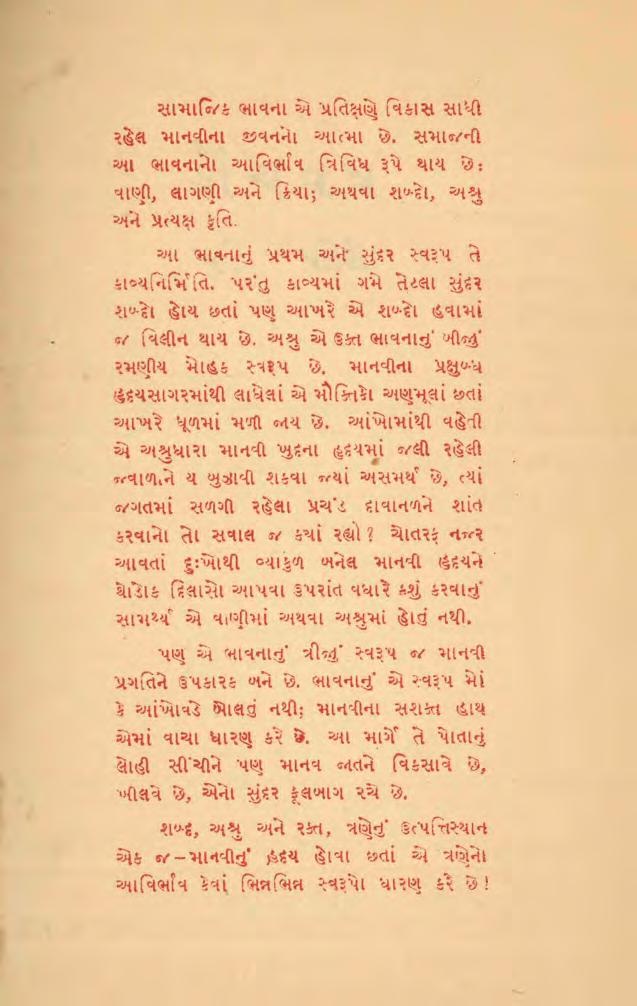 સામાજિક ભાવના એ પ્રતિક્ષણે વિકાસ સાધી
રહેલ માનવીના જીવનનો આત્મા છે. સમાજની
આ ભાવનાનો આવિર્ભાવ ત્રિવિધ રૂપે થાય છે:
વાણી, લાગણી અને ક્રિયા; અથવા શબ્દો, અશ્રુ
અને પ્રત્યક્ષ કૃતિ.
આ ભાવનાનું પ્રથમ અને સુંદર સ્વરૂપ તે
કાવ્યનિર્મિતિ. પરંતુ કાવ્યમાં ગમે તેટલા સુંદર
શબ્દો હોય છતાં પણ આખરે એ શબ્દો હવામાં
જ વિલીન થાય છે. અશ્રુ એ ઉક્ત ભાવનાનું બીજું
રમણીય મોહક સ્વરૂપ છે. માનવીના પ્રક્ષુબ્ધ
હૃદયસાગરમાંથી લાધેલાં એ મૌક્તિકો અણમૂલાં છતાં
આખરે ધૂળમાં મળી જાય છે. આંખોમાંથી વહેતી
એ અશ્રુધારા માનવી ખુદના હૃદયમાં જલી રહેલી
જ્વાળાને ય બુઝાવી શકવા જ્યાં અસમર્થ છે, ત્યાં
જગતમાં સળગી રહેલા પ્રચંડ દાવાનળને શાંત
કરવાનો તો સવાલ જ ક્યાં રહ્યો? ચોતરફ નજર
આવતાં દુઃખોથી વ્યાકુળ બનેલ માનવી હૃદયને
થોડોક દિલાસો આપવા ઉપરાંત વધારે કશું કરવાનું
સામર્થ્ય એ વાણીમાં અથવા અશ્રુમાં હોતું નથી.
પણ એ ભાવનાનું ત્રીજું સ્વરૂપ જ માનવી
પ્રગતિને ઉપકારક બને છે. ભાવનાનું એ સ્વરૂપ મોં
કે આંખોવડે બોલતું નથી; માનવીના સશક્ત હાથ
એમાં વાચા ધારણ કરે છે. આ માર્ગે તે પોતાનું
લોહી સીંચીને પણ માનવ જાતને વિકસાવે છે,
ખીલવે છે, એનો સુંદર ફૂલબાગ રચે છે.
શબ્દ, અશ્રુ અને રક્ત, ત્રણેનું ઉત્પત્તિસ્થાન
એક જ–માનવીનું હૃદય હોવા છતાં એ ત્રણેનો
આવિર્ભાવ કેવાં ભિન્નભિન્ન સ્વરૂપો ધારણ કરે છે!